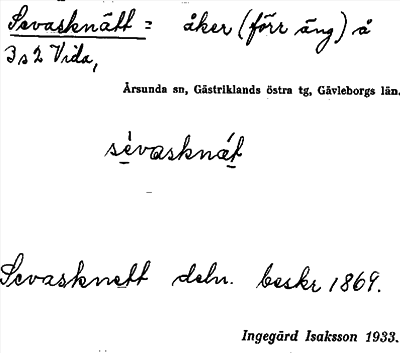 Sevasknätt = åker (förr äng) å
3 s 2 Vida,
Årsunda sn, Gästriklands östra tg, Gävleborgs län.
sèvasknát
Sevasknett deln. beskr 1869.
Ingegärd Isaksson 1933.